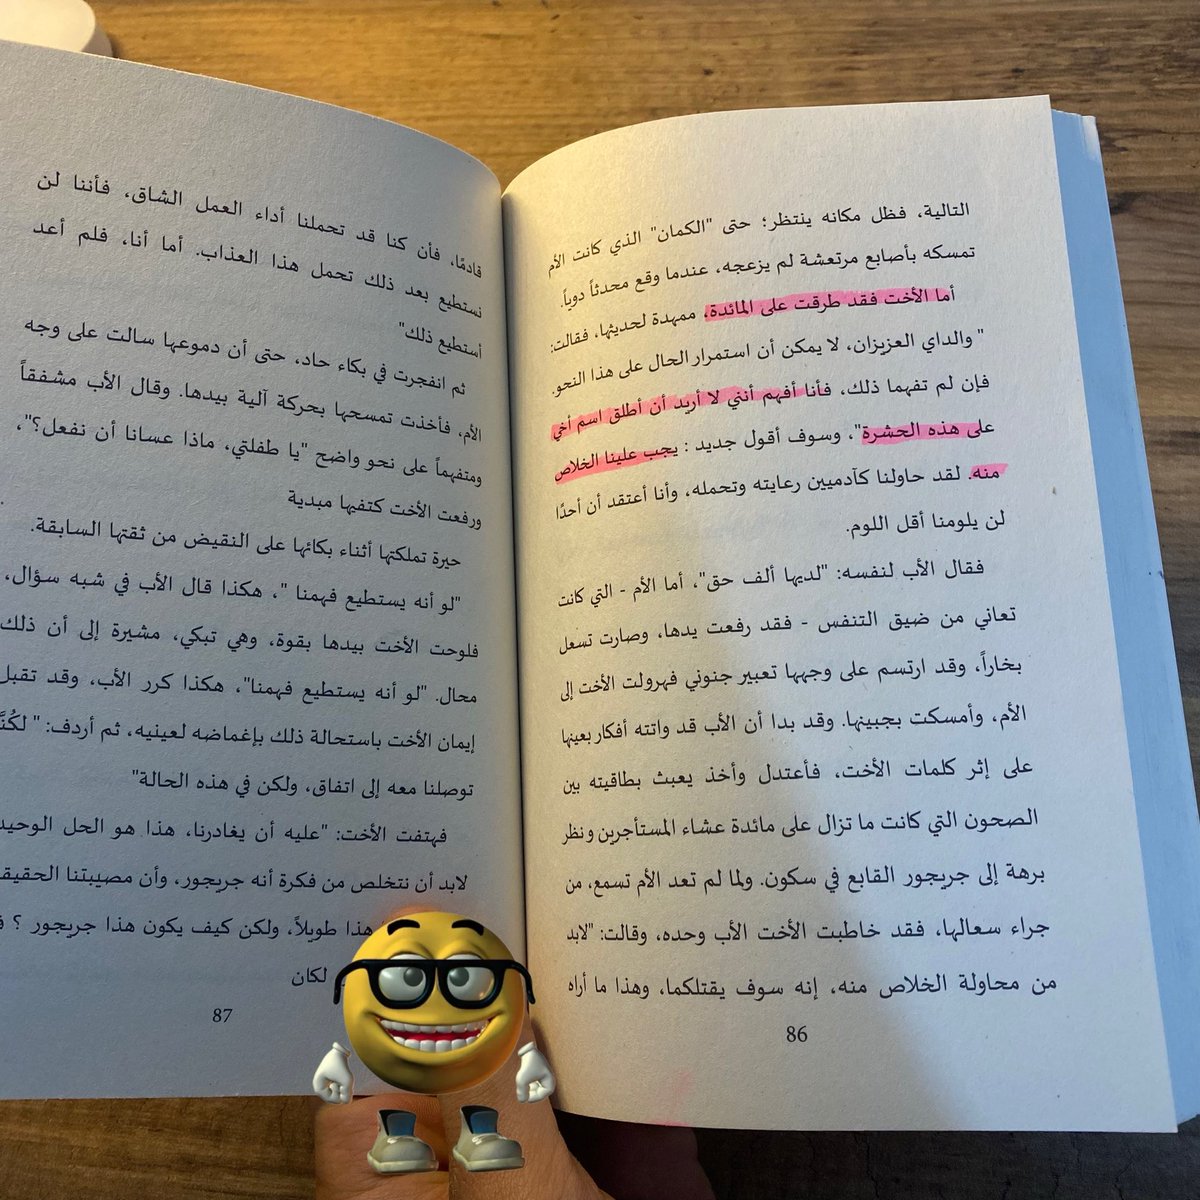 التالية، فظل مكانه ينتظر؛ حتى "الكمان" الذي كانت الأم
تمسكه بأصابع مرتعشة لم يزعجه، عندما وقع محدثاً دوياً.
أما الأخت فقد طرقت على المائدة، ممهدة لحديثها، فقالت:
" والداي العزيزان، لا يمكن أن استمرار الحال على هذا النحو.
فإن لم تفهما ذلك، فأنا أفهم أنني لا أريد أن أطلق اسم أخي
على هذه الحشرة"، وسوف أقول جديد : يجب علينا الخلاص
منه. لقد حاولنا كآدميين رعايته وتحمله، وأنا أعتقد أن أحدًا
لن يلومنا أقل اللوم.
فقال الأب لنفسه: "لديها ألف حق"، أما الأم - التي كانت
تعاني من ضيق التنفس - فقد رفعت يدها، وصارت تسعل
بخاراً، وقد ارتسم على وجهها تعبير جنوني فهرولت الأخت إلى
الأم، وأمسكت بجبينها. وقد بدا أن الأب قد واتته أفكار بعينها
على إثر كلمات الأخت، فأعتدل وأخذ يعبث بطاقيته بين
الصحون التي كانت ما تزال على مائدة عشاء المستأجرين ونظر
برهة إلى جريجور القابع في سكون. ولما لم تعد الأم تسمع، من
جراء سعالها، فقد خاطبت الأخت الأب وحده، وقالت: "لابد
من محاولة الخلاص منه، إنه سوف يقتلكما، وهذا ما أراه
86
قادمًا، فأن كنا قد تحملنا أداء العمل الشاق، فأننا لن
نستطيع بعد ذلك تحمل هذا العذاب. أما أنا، فلم أعد
أستطيع ذلك"
ثم انفجرت في بكاء حاد، حتى أن دموعها سالت على وجه
الأم، فأخذت تمسحها بحركة آلية بيدها. وقال الأب مشفقاً
ومتفهماً على نحو واضح "يا طفلتي، ماذا عسانا أن نفعل؟"،
ورفعت الأخت كتفيها مبدية
حيرة تملكتها أثناء بكائها على النقيض من ثقتها السابقة.
"لو أنه يستطيع فهمنا "، هكذا قال الأب في شبه سؤال،
فلوحت الأخت بيدها بقوة، وهي تبكي، مشيرة إلى أن ذلك
محال. "لو أنه يستطيع فهمنا"، هكذا كرر الأب، وقد تقبل
إيمان الأخت باستحالة ذلك بإغماضه لعينيه، ثم أردف: " لكُنَّا
توصلنا معه إلى اتفاق، ولكن في هذه الحالة"
فهتفت الأخت: "عليه أن يغادرنا، هذا هو الحل الوحيد
لابد أن نتخلص من فكرة أنه جريجور، وأن مصيبتنا الحقيقة
هذا طويلاً، ولكن كيف يكون هذا جريجور ؟
لكان
87